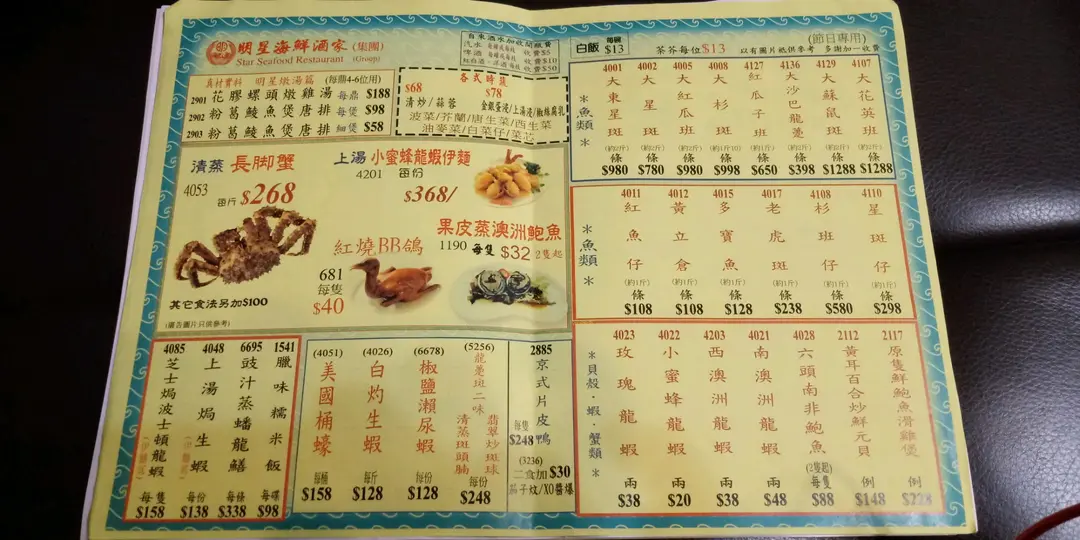 明星海鮮酒家 (集團)
Star Seafood Restaurant (Group)
自來酒水加收開瓶費
汽水 每罐或每枝 收費$5
啤酒 每罐或每枝 收費$10
收費$50
白飯 每碗 $13
茶芥每位$13
(節日專用)
以有圖片紙供參考 多謝加一收費
真材實料 明星燉湯篇 (每鼎4-6位用)
2901 花膠螺頭燉雞湯 每鼎 $188
2902 粉葛鯪魚煲唐排 每煲 $98
2903 粉葛鯪魚煲唐排 細煲 $58
各式時蔬
$68 $78
清炒/蒜蓉 金銀蛋浸/上湯浸/椒絲腐乳
菠菜/芥蘭/唐生菜/西生菜
油麥菜/白菜仔/菜芯
清蒸 長脚蟹
4053 每斤 $268
其它食法另加$100
(廣告圖片只供參考)
上湯 小蜜蜂龍蝦伊麵
4201 每份
$368/
果皮蒸澳洲鮑魚
1190 每隻 $32 2隻起
紅燒BB鴿
681
每隻
$40
*魚類*
4001 大東星斑 條 $980
4002 大星斑 條 $780
4005 大紅瓜斑 條 $980
4008 大杉斑 條 $998
4127 紅瓜子斑 條 $650
4136 大沙巴龍躉 條 $398
4129 大蘇鼠斑 條 $1288
4107 大花英斑 條 $1288
*魚類*
4011 紅魚仔 (約1斤) 條 $108
4012 黃立倉 (約1斤) 條 $108
4015 多寶魚 (約1斤) 條 $128
4017 老虎斑 (約1斤) 條 $238
4108 杉斑仔 (約1斤) 條 $580
4110 星斑仔 (約1斤) 條 $298
*貝殼·蝦·蟹類*
4023 玫瑰龍蝦 兩 $38
4022 小蜜蜂龍蝦 兩 $20
4203 西澳洲龍蝦 兩 $38
4021 南澳龍蝦 兩 $48
4028 六頭南非鮑魚 (2隻起) 每隻 $88
2112 黃耳百合炒鮮元貝 例 $148
2117 原隻鮮鮑魚滑雞煲 例 $228
4085 芝士焗波士頓龍蝦 每隻 $158
4048 上湯焗生蝦 每份 $138
6695 豉汁蒸蟠龍鱔 每條 $338
1541 臘味糯米飯 每碟 $98
(4051) 美國桶蠔 每桶 $158
(4026) 白灼生蝦 每斤 $128
(6678) 椒鹽瀨尿蝦 每份 $128
(5256) 龍躉斑二味 翡翠炒斑球 清蒸斑頭腩 每份 $248
2885 京式片皮鴨 每隻 $248
(3236)
二食加 $30